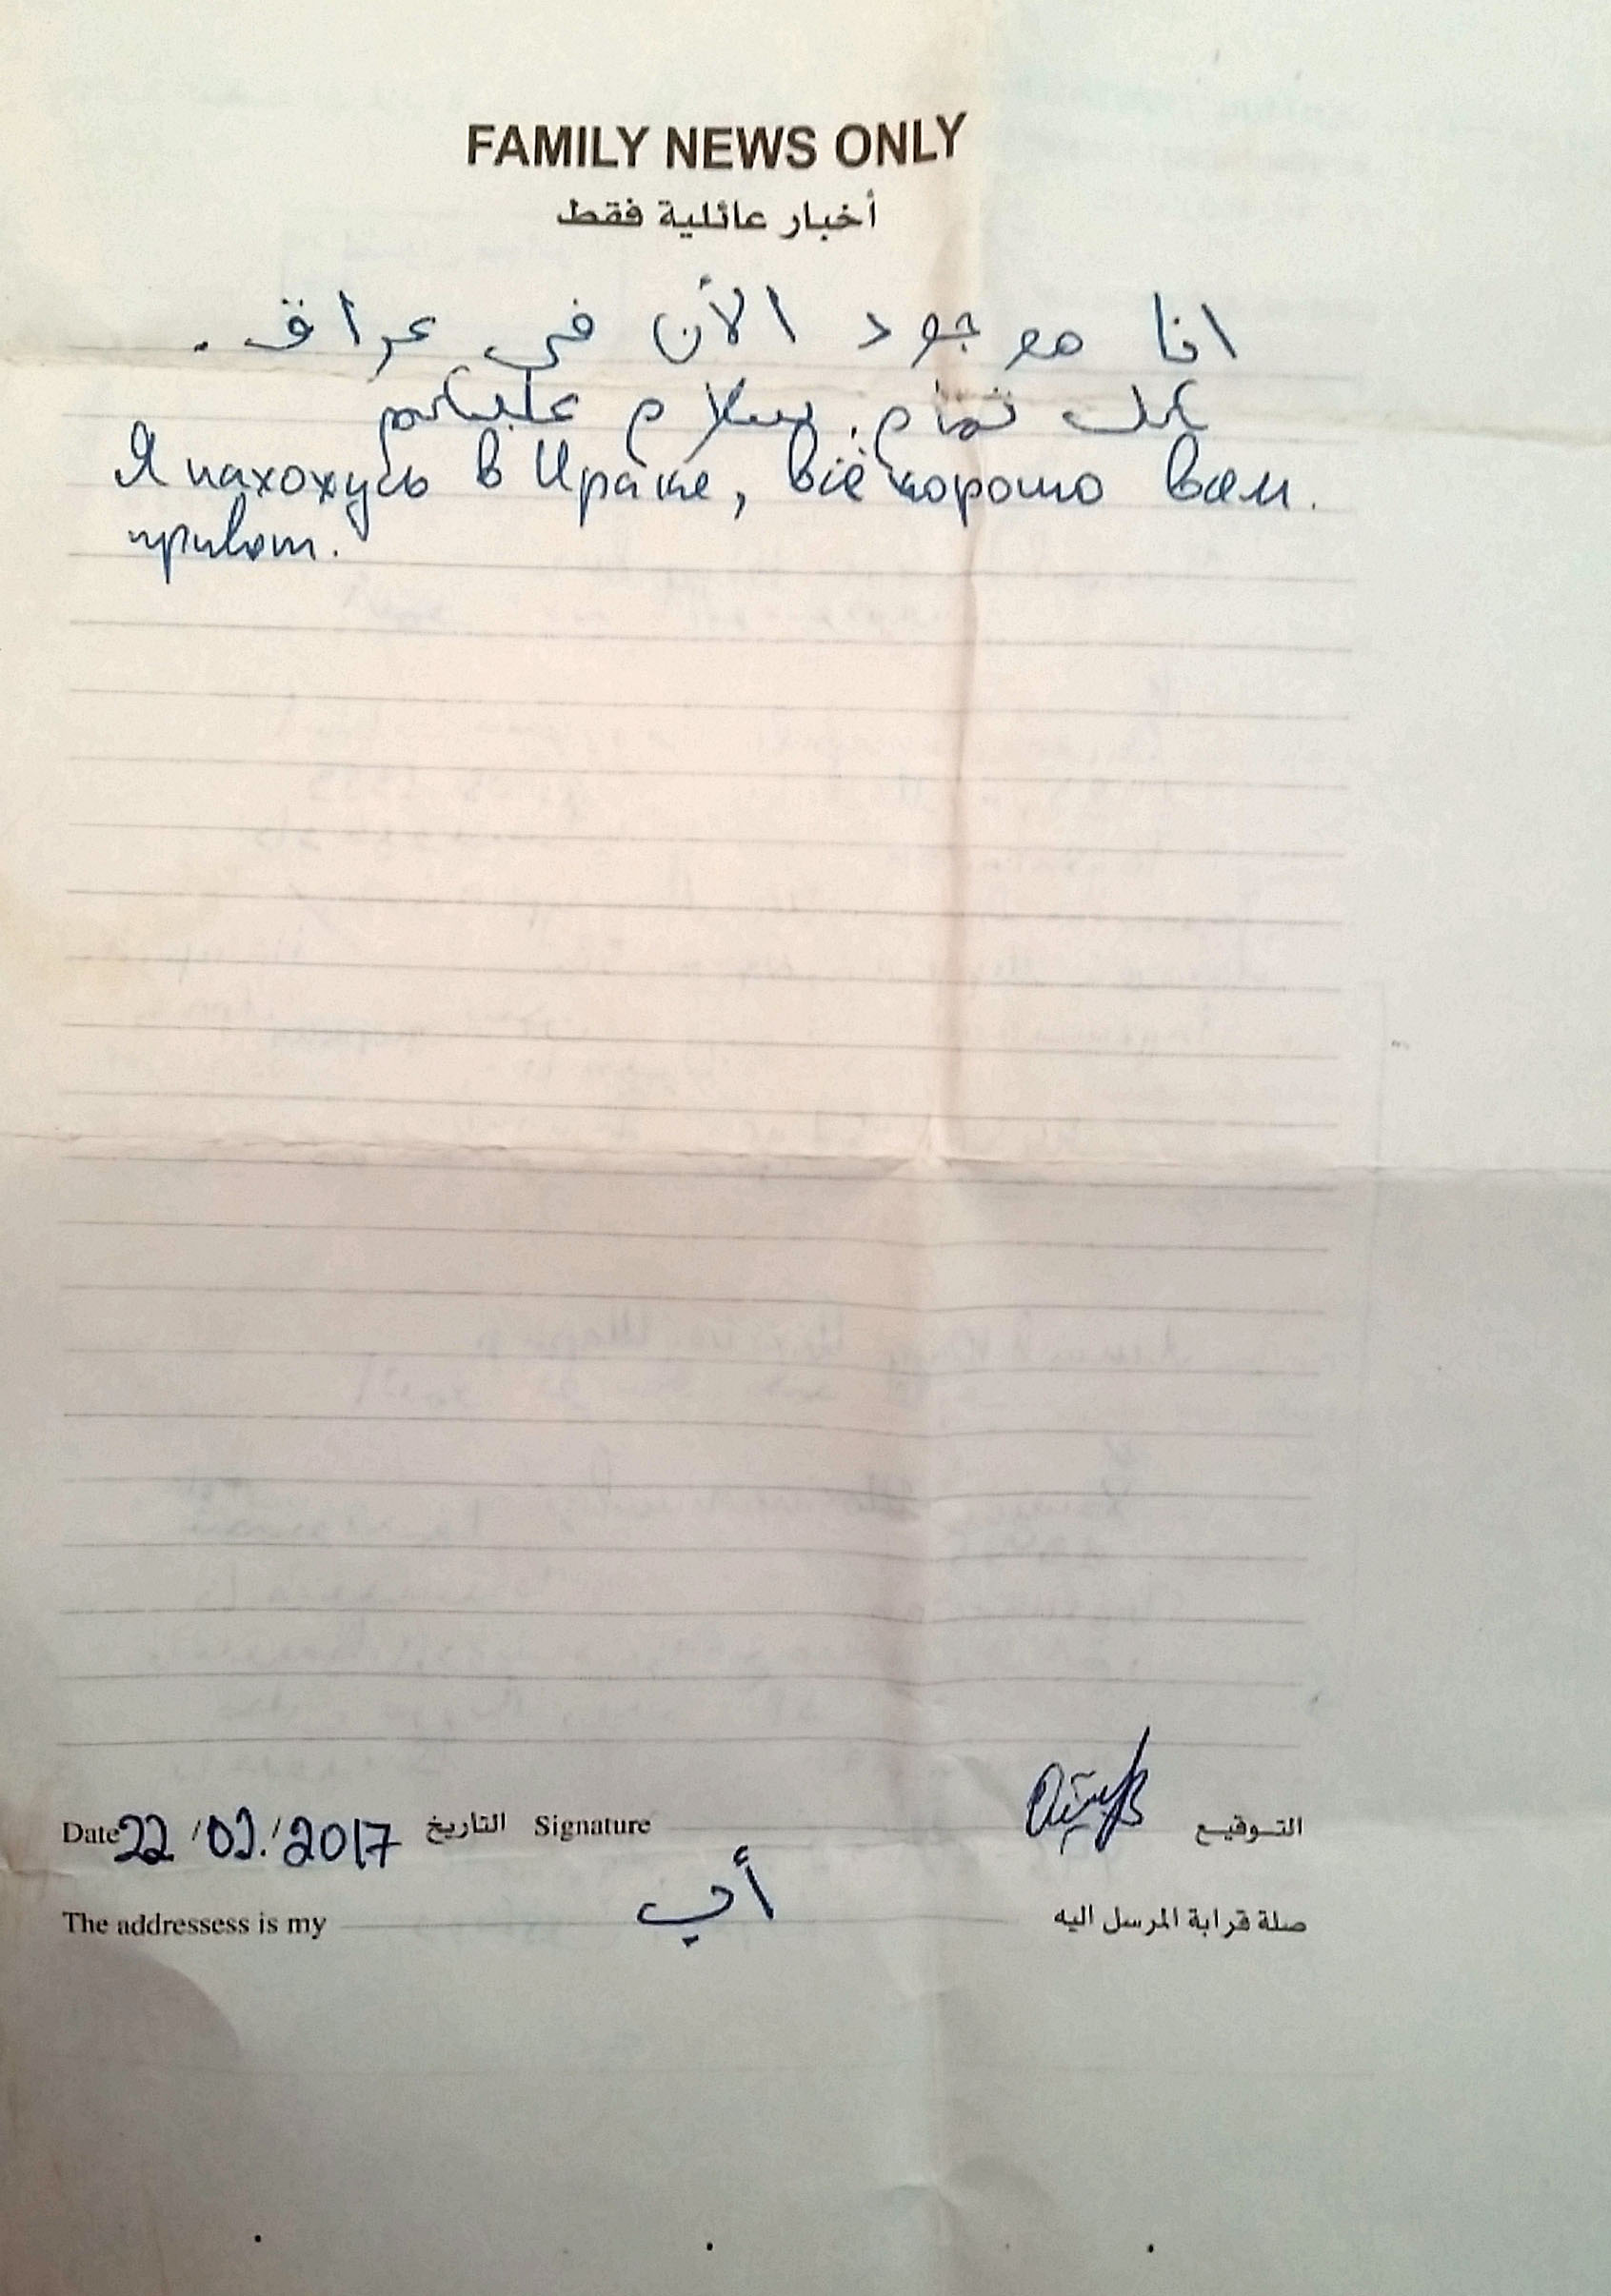 FAMILY NEWS ONLY
أخبار عائلية فقط
انا موجود الأن في عراق .
كل تمام. سلام عليكم
Я нахожусь в Ираке, всё хорошо вам.
привет.
Date 22 / 02. / 2017 التاريخ Signature التوقيع
The addressess is my أبي صلة قرابة المرسل اليه